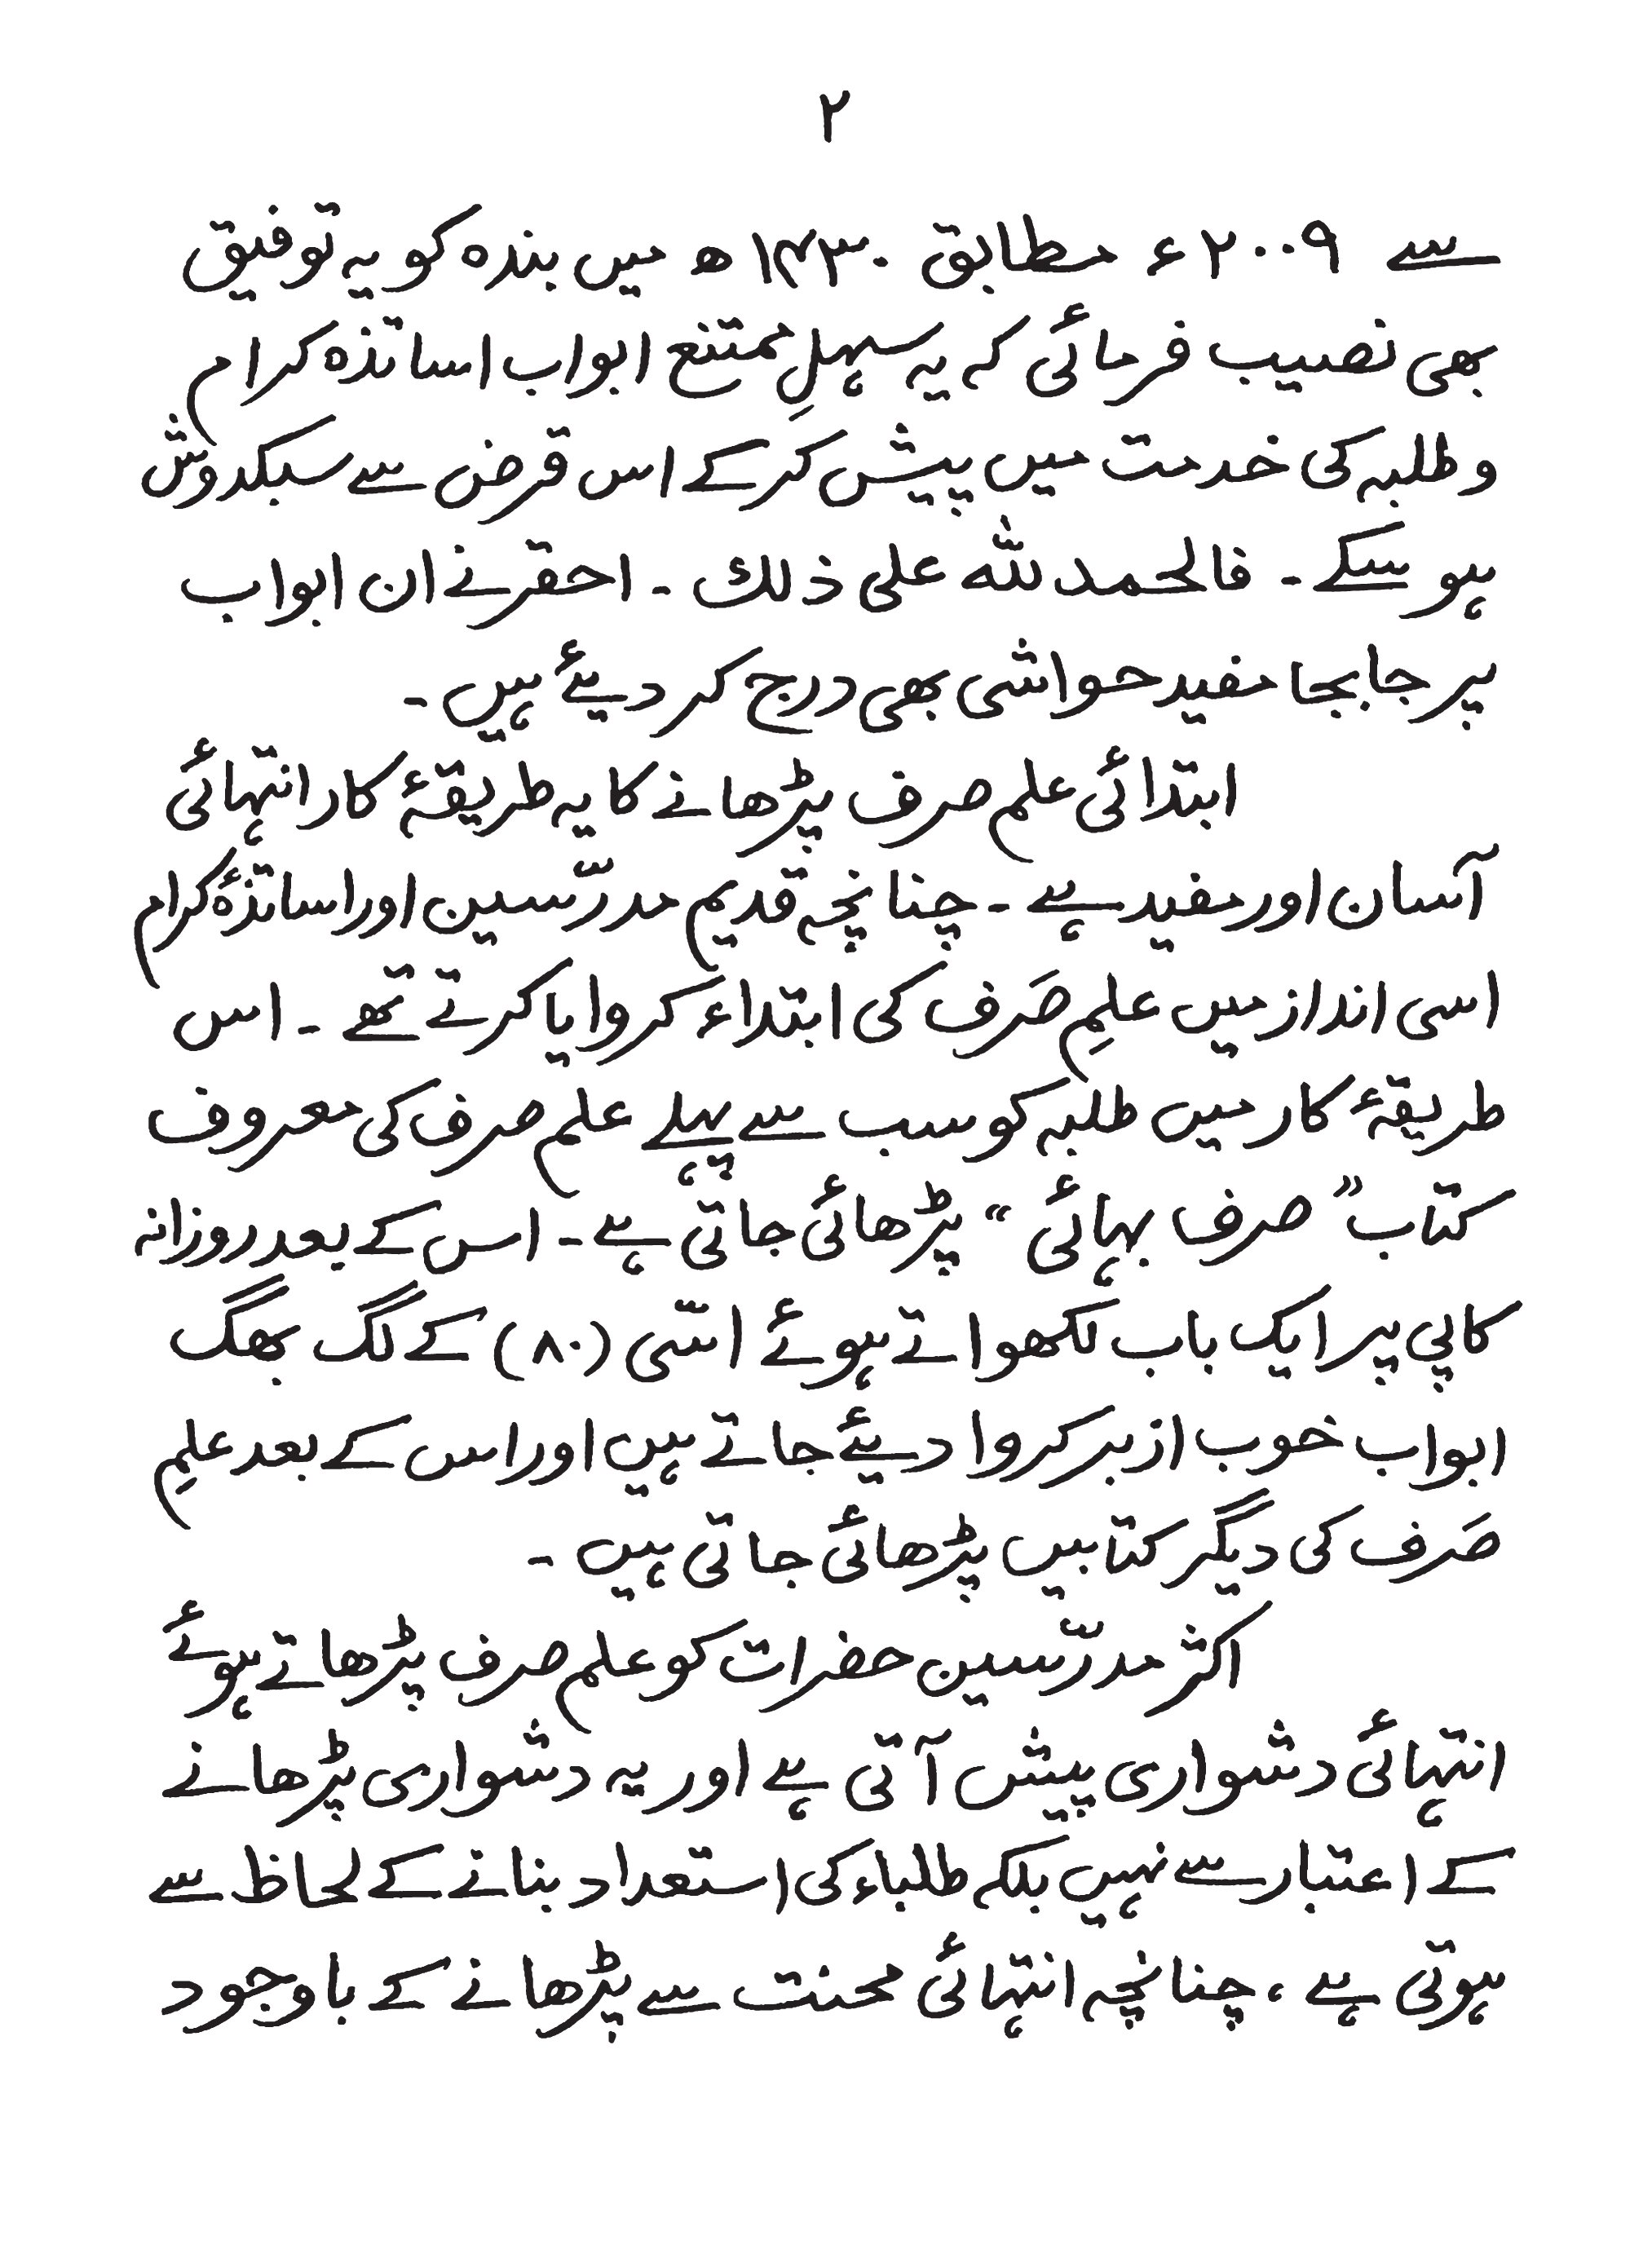 ۲
سے ۲۰۰۹ء مطابق ۱۴۳۰ھ میں بندہ کو یہ توفیق
بھی نصیب فرمائی کہ یہ سہلِ ممتنع ابواب اساتذہ کرام
و طلبہ کی خدمت میں پیش کرکے اس قرض سے سبکدوش
ہو سکے ۔ فالحمد للّٰہ علی ذلك ۔ احقر نے ان ابواب
پر جا بجا مفید حواشی بھی درج کر دیئے ہیں ۔
ابتدائی علم صرف پڑھانے کا یہ طریقۂ کار انتہائی
آسان اور مفید ہے ۔ چنانچہ قدیم مدرّسین اور اساتذۂ کرام
اسی انداز میں علمِ صَرف کی ابتداء کروایا کرتے تھے ۔ اس
طریقۂ کار میں طلبہ کو سب سے پہلے علم صرف کی معروف
کتاب ”صرف بہائی“ پڑھائی جاتی ہے ۔ اس کے بعد روزانہ
کاپی پر ایک باب لکھواتے ہوئے اسّی (۸۰) کے لگ بھگ
ابواب خوب ازبر کروا دیئے جاتے ہیں اور اس کے بعد علمِ
صَرف کی دیگر کتابیں پڑھائی جاتی ہیں ۔
اکثر مدرّسین حضرات کو علم صرف پڑھاتے ہوئے
انتہائی دشواری پیش آتی ہے اور یہ دشواری پڑھانے
کے اعتبار سے نہیں بلکہ طلباء کی استعداد بنانے کے لحاظ سے
ہوتی ہے ، چنانچہ انتہائی محنت سے پڑھانے کے باوجود